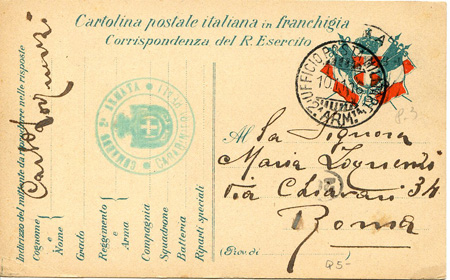 Cartolina postale italiana in franchigia
Corrispondenza del R. Esercito
UFFICIO POSTA MILITARE
2ª ARMATA
COMANDO 2ª ARMATA
CARABINIERI
Indirizzo del mittente da riprodurre nelle risposte
Cognome e Nome
Carlo
Grado
Reggimento e Arma
Compagnia
Squadrone
Batteria
Riparti speciali
Al La Signora
Maria
Via Chiavari 34
Roma
(Prov. di